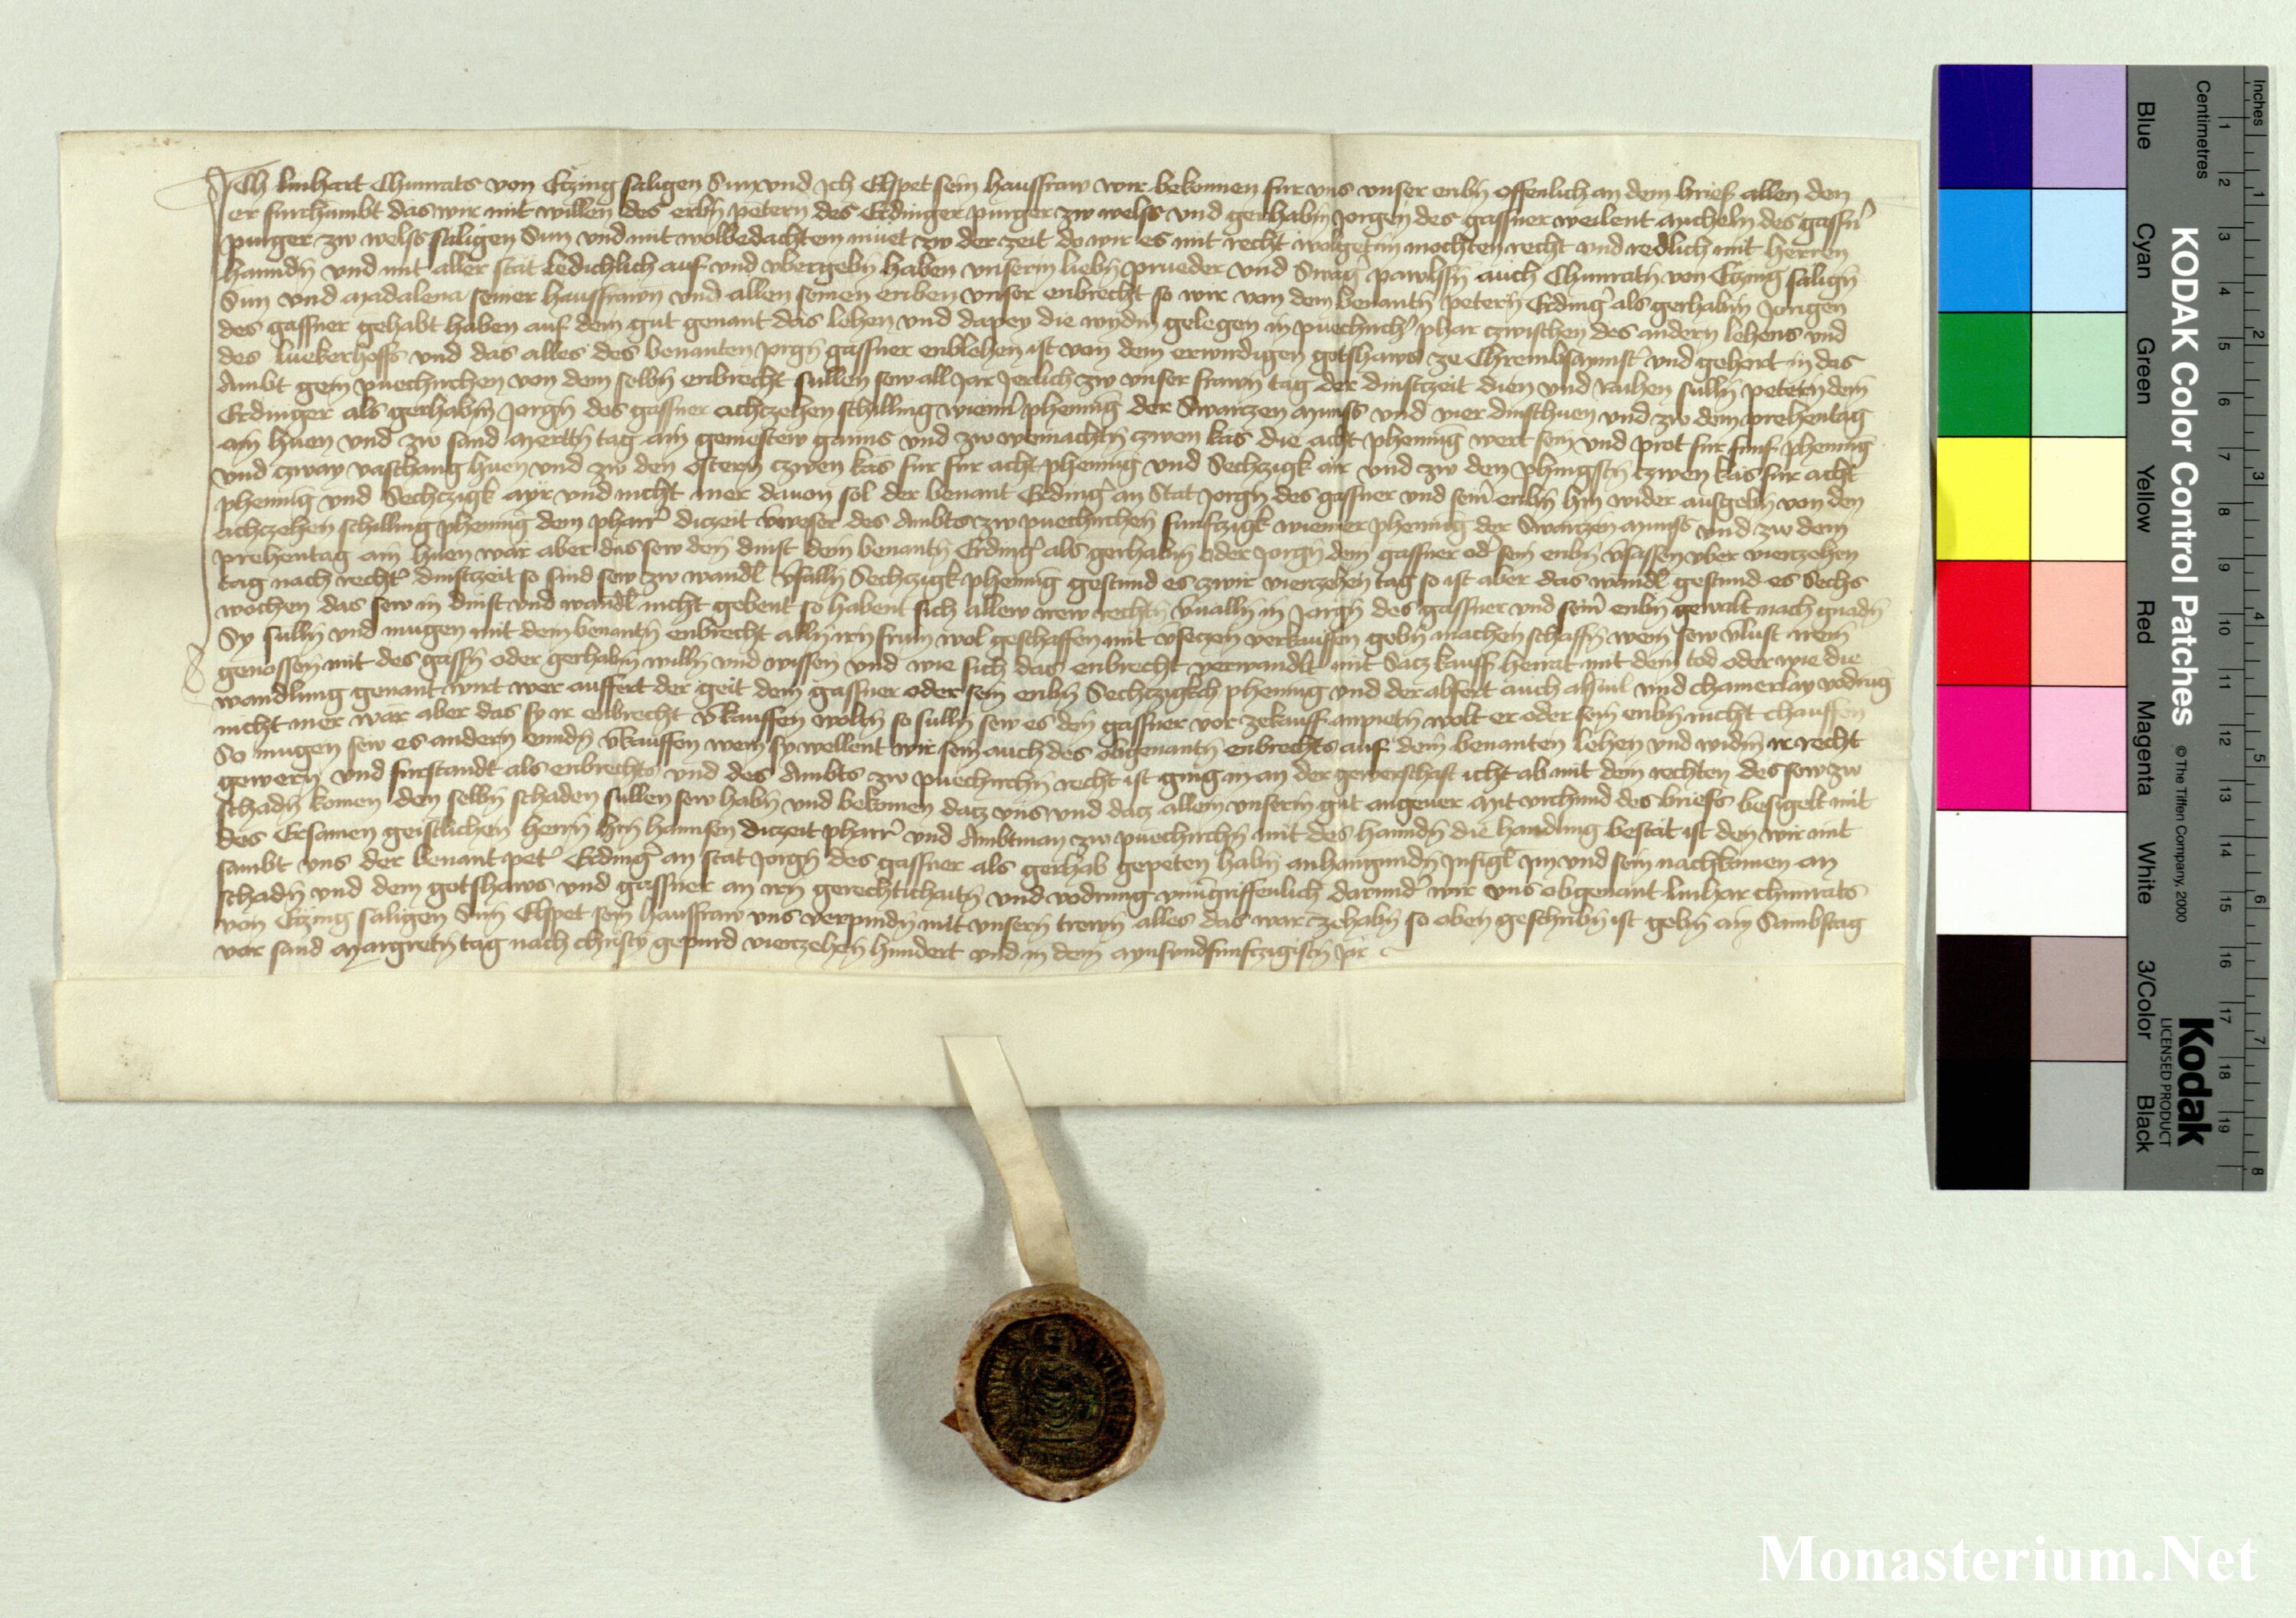 Ich linhart Chunrats von Etzing saligen Sun vnd Ich Elspet sein hausfraw wir bekennen fur vns vnser enbn offenlich an dem brieff allen den
er furchumbt das wir mit willen des erbn petern des Erdinger purger zw welss vnd gerhabin Jorgen des gassner weilent micheln des gassn
purger zw welss saligen Sun vnd mit wolbedachtem muet zw der zeit do wir es mit recht wolgetun mochten recht vnd redlich mit herren
hannden vnd mit aller stät ledichlich auf vnd vbergebn haben vnserm liebn prueder vnd Swag pawlssn auch Chunratn von Etzing salign
Sun vnd Madalena seiner hausfrawn vnd allen seinen eriben vnser enbrecht so wir von dem benantn petern Erding als gerhabin Jorigen
des gassner gehabt haben auf dem gut genant das lehen vnd dapey die wydm gelegen in puechirch phar czwischen des andern lehens vnd
des luekerhoffs vnd das alles des benanten Jorgn gassner enblehen ist von dem erwirdigen gotshaws ze Chrembsmunst vnd gehort in das
Ambt gein puechirchen von dem selbn enbrecht sullen sew all Jar Jerlich zw vnser frawn tag der dinstzeit dien vnd raihen sulln petern dem
Erdinger als gerhabin Jorgn des gassner achtzehen schilling wienn phennig der Swarczen muniss vnd vier dinsthuen vnd zw dem prehentag
ain huen vnd zw sand mertn tag ain gemestew ganns vnd zw weinachtn czwen käs die acht phennig wert sein vnd prot fur funf phennig
vnd czway vaschang huen vnd zw den ostern czwen käs fur fur acht phennig vnd Sechzigk air vnd zw den phingstn czwen käs fur acht
phennig vnd Sechczigk ayr vnd nicht mer dauon sol der benant Erding an stat Jorgn des gassner vnd sein enbn hin wider ausgebn von den
achczehen schilling phennig dem pharr diczeit vweser des Ambts zw puechirchen funftzigk wienner phennig der Swarczen muniss vnd zw dem
prehentag ain huen wär aber das sew den dinst dem benantn Erding als gerhabin oder Jorgn dem gassner od sein enbn vsässen vber vierczehen
tag nach recht dinstzeit so sind sew zw wandl vfalln Sechczigk phennig gestund es zwir vierzehen tag so ist aber das wandl gestund es Sechs
wochen das sew in dinst vnd wandl nicht gebent so habent sich allew irew rechtn vualln in Jorgn des gassner vnd sein enbn gewalt nach gnadn
Sy sulln vnd mugen mit dem benantn enbrecht alln irn frum wol geschaffen mit vseczen verkauffen gebn machen schaffn wem sew vlust irem
genossen mit des gassn oder gerhabin willn vnd wissen vnd wie sich das enbrecht verwandlt mit Satz kauff heirat mit dem tod oder wie die
wandlung genant wirt wer auffert der geit dem gassner oder sein enbn Sechczigkch phennig vnd der abfert auch alsuil vnd chamerlay vodrug
nicht mer wär aber das sy ir enbrecht vkauffen woltn so sulln sew es den gassner vor zekauff anpietn wolt er oder sein enbn nicht chauffen
So mugen sew es andern enndn vkauffen wem sy wellent wir sein auch des obgenantn enbrechts auf dem benanten lehen vnd widm ir recht
gewern vnd furstandt als enbrechts vnd des Ambts zw puechirchn recht ist ging in an der gewerschaft icht ab mit dem rechten des sew zw
schadn komen den selbn schaden sullen sew habn vnd bekomen datz vns vnd datz allem vnserm gut angeuer mit vrchund des briefs besigelt mit
des Ersamen geistlichen herrn hrn hannsen diczeit pharr vnd Ambtman zw puechirchn mit des hanndn die handlung bestät ist den wir mit
sambt vns der benant pet Erding an stat Jorgn des gassner als gerhab gepeten habn anhangundn Insigl Im vnd sein nachkomen an
schadn vnd dem gotshaws vnd gassner an irn gerechtichaitn vnd vodrung vnuergriffenlich darund wir vns obgenant linhar chunrats
von Etzing saligen Sun Elspet sein hausfraw vns verpindn mit vnsern trewn alles das war zehabn so oben geschribn ist gebn am Sambstag
vor sand Margretn tag nach christy gepurd vierzehen hundert vnd in dem aynsvndfunftzigistn Jar
KODAK Color Control Patches © The Tiffen Company, 2000
Kodak
LICENSED PRODUCT
Inches 1 2 3 4 5 6 7 8
Centimetres 1 2 3 4 5 6 7 8 9 10 11 12 13 14 15 16 17 18 19
Blue Cyan Green Yellow Red Magenta White 3/Color Black
Monasterium.Net